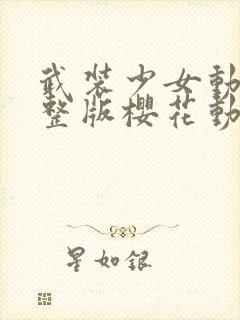 武装少女動
整版櫻花動
星如銀